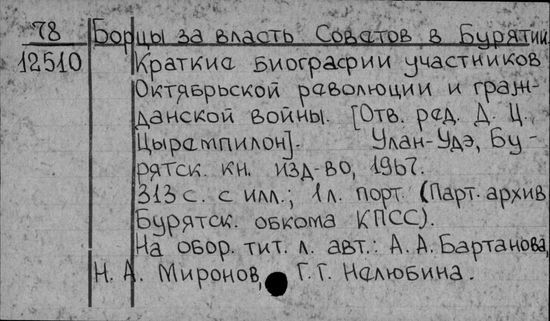 78 Борцы за власть Советов в Бурятии
12510 Краткие биографии участников
Октябрьской революции и граж-
данской войны. [Отв. ред. Д. Ц.
Цыремпилон]. Улан-Удэ, Бу-
рятск. кн. изд-во, 1967.
313 с. с илл.; 1 л. порт. (Парт. архив
Бурятск. обкома КПСС).
На обор. тит. л. авт.: А. А. Бартанова,
Н. А. Миронов, Г. Г. Налюбина.